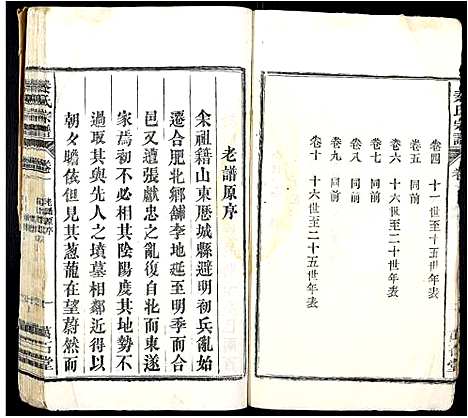 秦氏宗譜
卷四 十一世至十五世年表
卷五 同前
卷六 十六世至二十世年表
卷七 同前
卷八 同前
卷九 同前
卷十 十六世至二十五世年表
老譜原序
余祖籍山東歷城縣避明初兵亂始
遷合肥北鄉舖李地延至明季而合
邑又遭張獻忠之亂復自北而東遂
家焉初不必相其陰陽度其地勢不
過取其與先人之墳墓相鄰近得以
朝夕瞻依但見其葱蘢在望蔚然而
秦氏宗譜
老譜原序
萬石堂